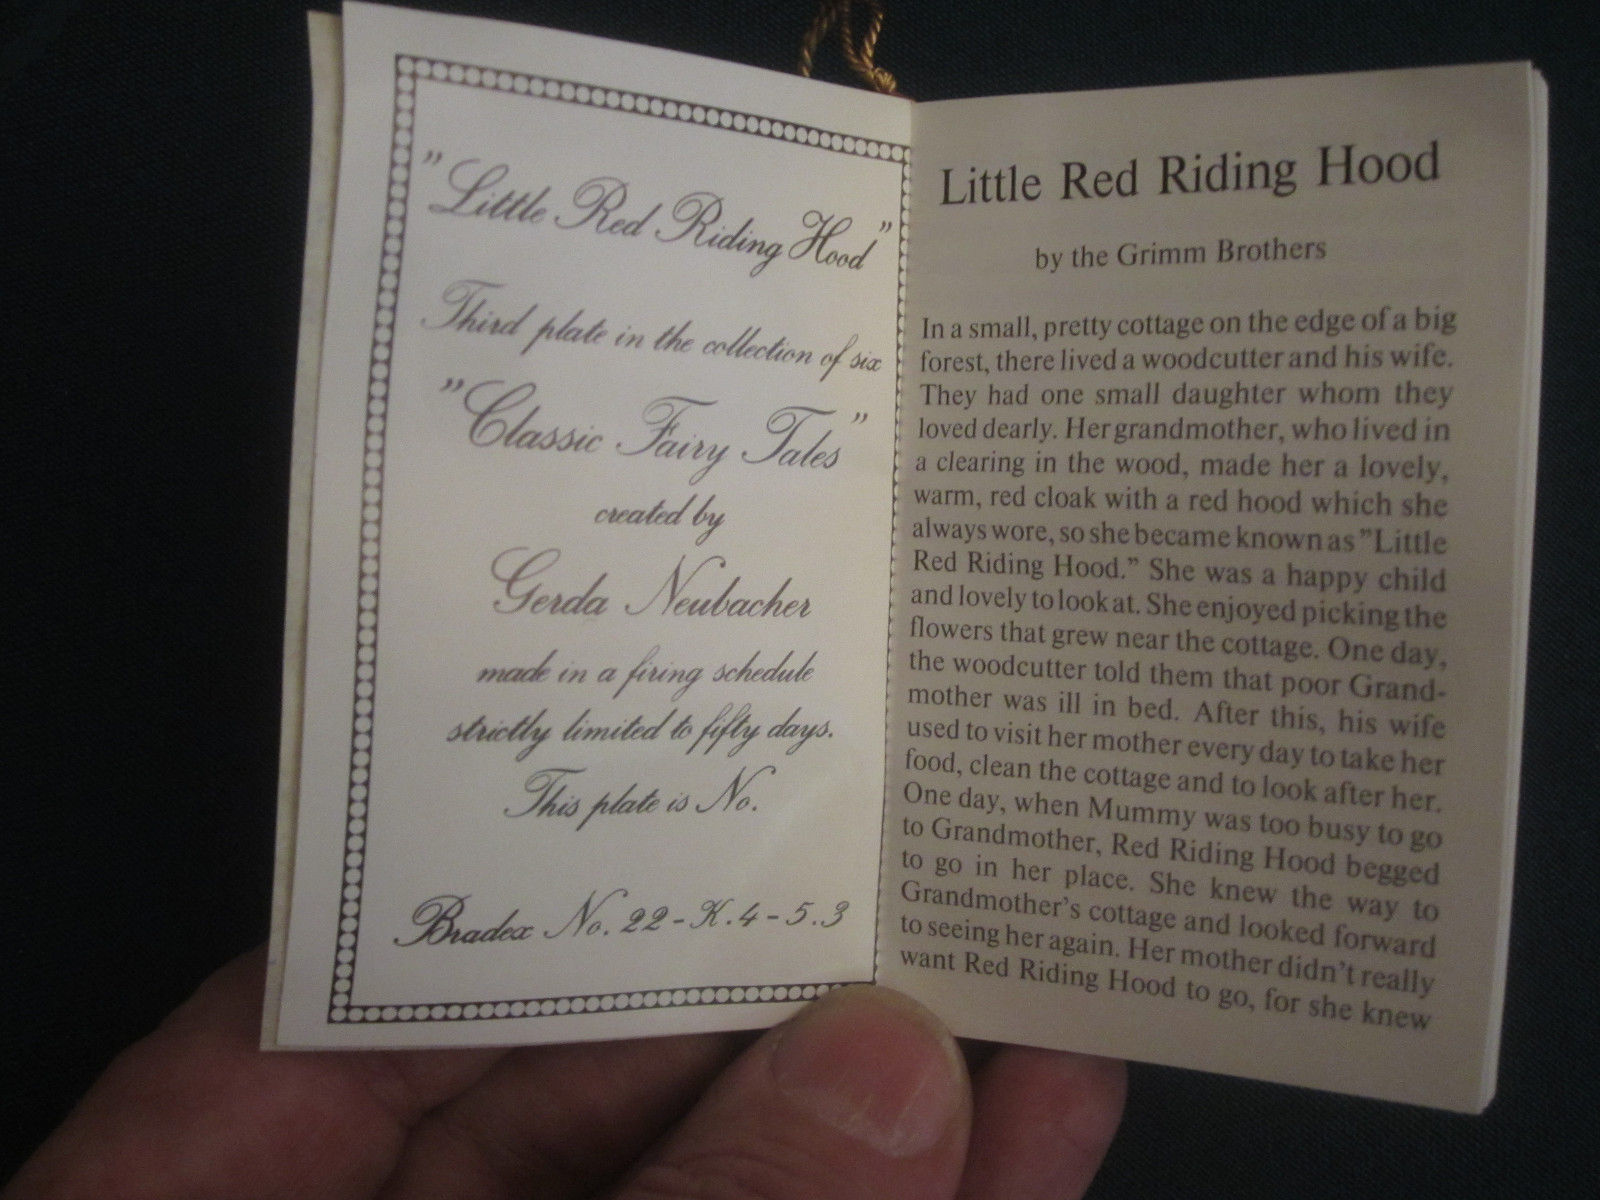 ”Little Red Riding Hood”
Third plate in the collection of six
”Classic Fairy Tales”
created by
Gerda Neubacher
made in a firing schedule
strictly limited to fifty days.
This plate is No.
Bradex No. 22-K.4-5.3
Little Red Riding Hood
by the Grimm Brothers
In a small, pretty cottage on the edge of a big
forest, there lived a woodcutter and his wife.
They had one small daughter whom they
loved dearly. Her grandmother, who lived in
a clearing in the wood, made her a lovely,
warm, red cloak with a red hood which she
always wore, so she became known as ”Little
Red Riding Hood.” She was a happy child
and lovely to look at. She enjoyed picking the
flowers that grew near the cottage. One day,
the woodcutter told them that poor Grand-
mother was ill in bed. After this, his wife
used to visit her mother every day to take her
food, clean the cottage and to look after her.
One day, when Mummy was too busy to go
to Grandmother, Red Riding Hood begged
to go in her place. She knew the way to
Grandmother's cottage and looked forward
to seeing her again. Her mother didn't really
want Red Riding Hood to go, for she knew